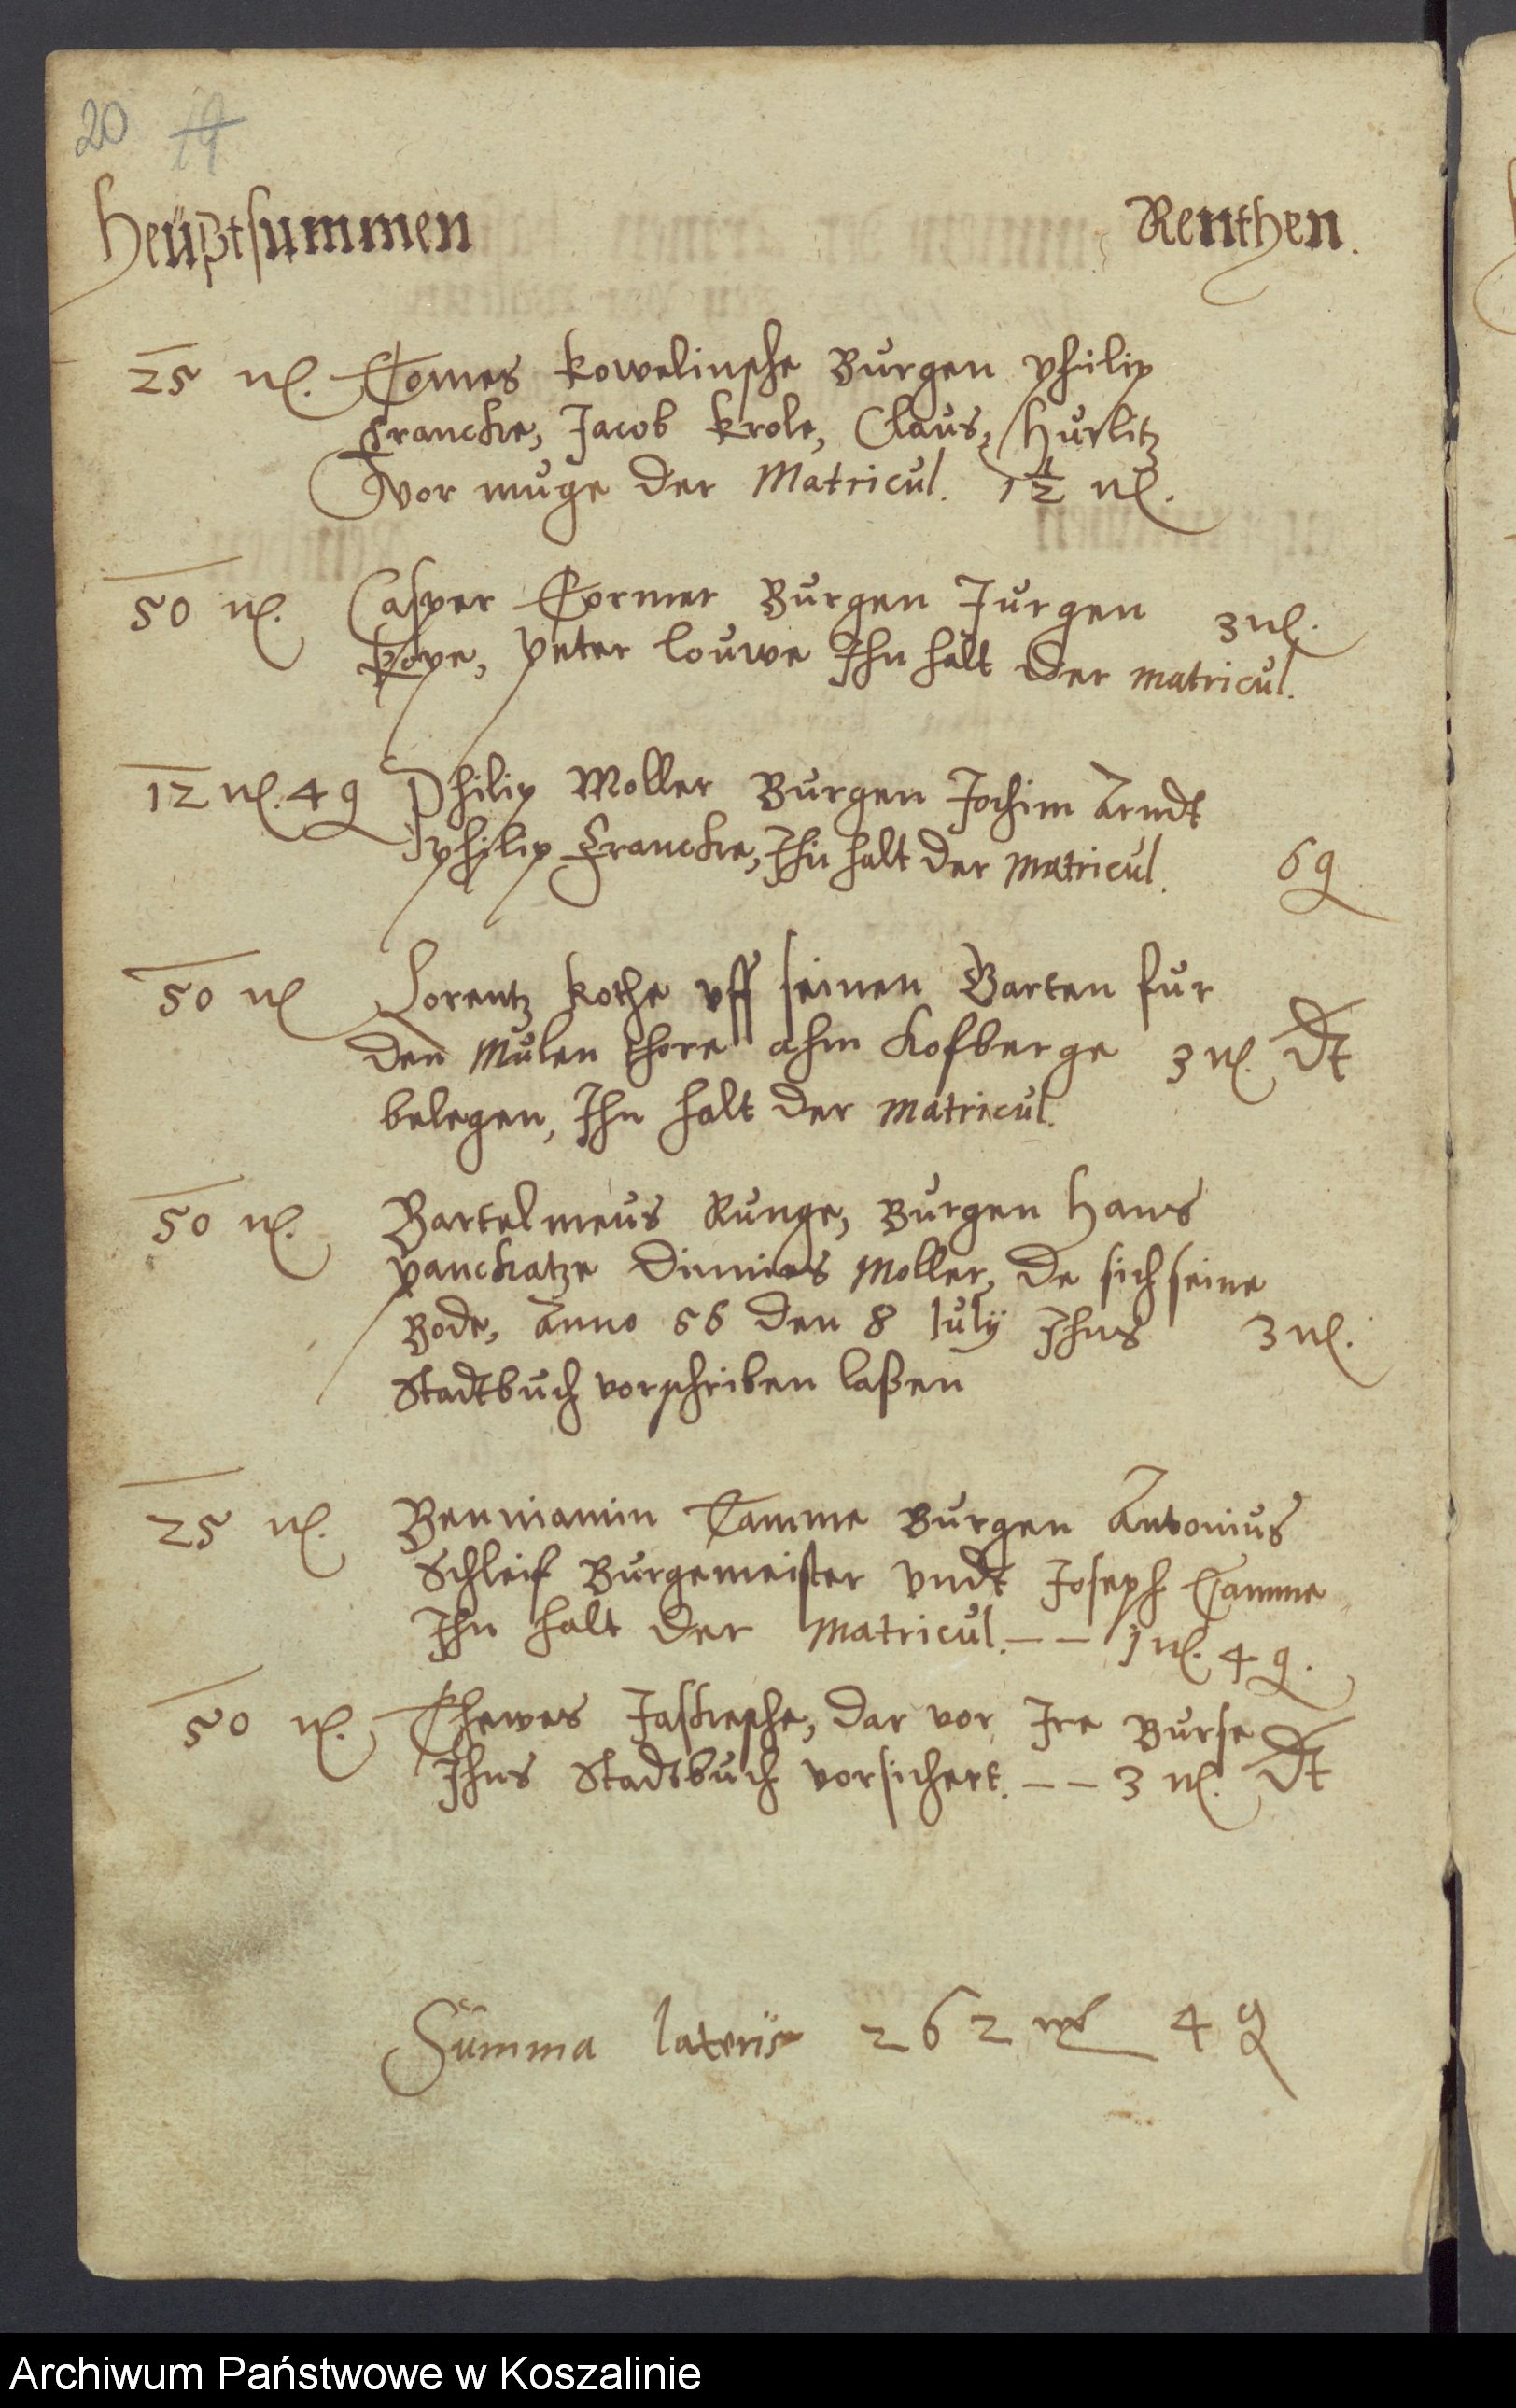 20 19
Heüptsummen Renthen.
25 ml. Tomes Kowelinsche Burgen Philip
Francke, Jacob Krole, Claus Hurlitz
Vor muge der Matricul. 1½ ml.
50 ml. Casper Cormer Burgen Jurgen 3 ml.
Kope, Peter Louwe Ihn halt der matricul.
12 ml. 4 g Philip Moller Burgen Jochim Arndt
Philip Francke, Ihn halt der Matricul. 6 g
50 ml Lorentz Kothe vff seinen Garten fur
den Mulen thore ahm Kofberge 3 ml. dt
belegen, Ihn halt der Matricul.
50 ml. Bartelmeus Runge, Burgen Hans
Panckatze Dinnies Moller, de sich seine
Bode, Anno 56 den 8 July Ihns 3 ml.
Stadtbuch vorschriben laßen
25 ml. Benniamin Tamme Burgen Antonius
Schleif Burgemeister vndt Joseph Tamme
Ihn halt der Matricul. -- 1 ml. 4 g.
50 ml. Thewes Jaskesche, dar vor Ire Burse
Ihns Stadtbuch vorsichert. -- 3 ml. dt
Summa lateris 262 ml 4 g
Archiwum Państwowe w Koszalinie